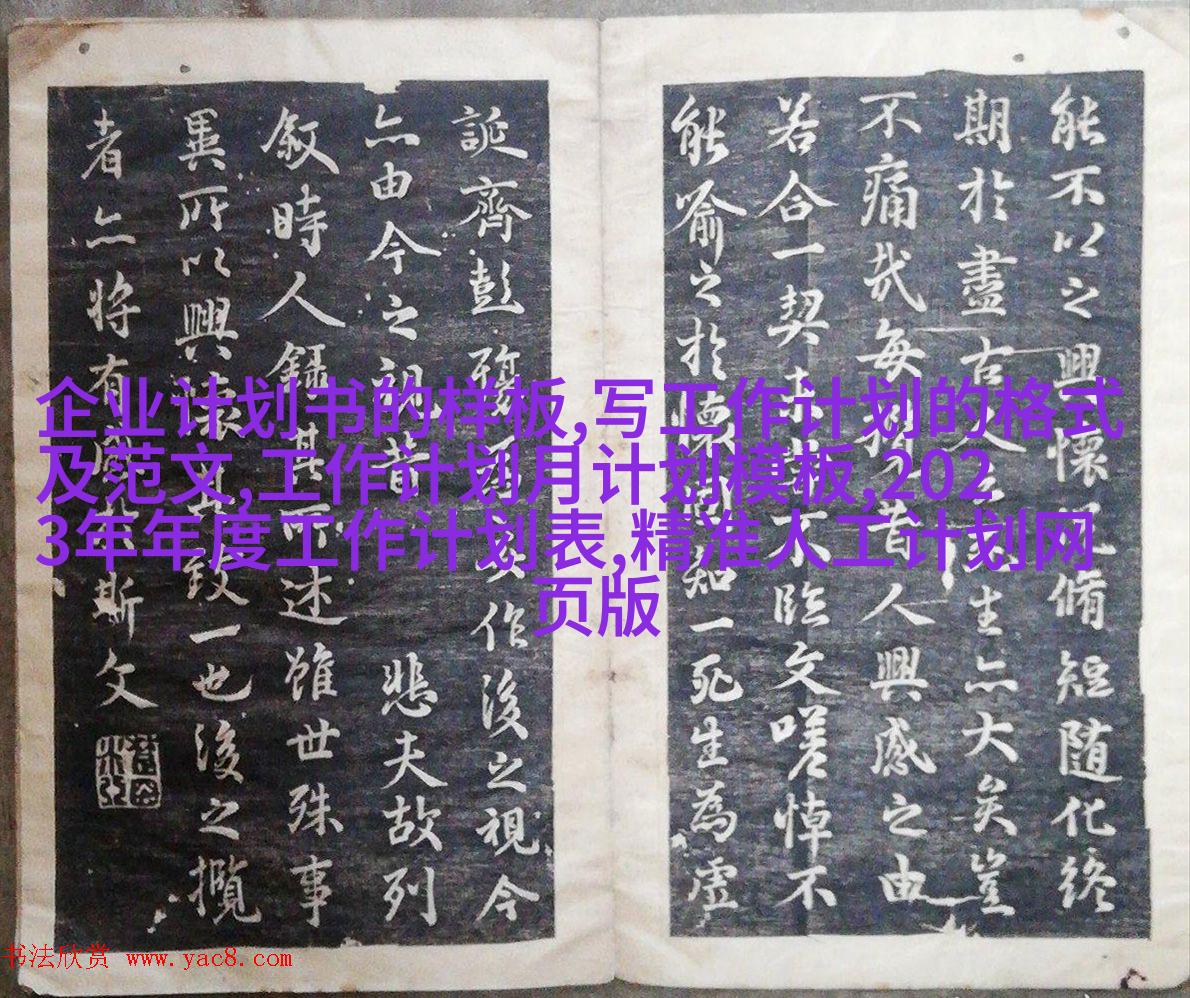 能不以之興懷况脩短随化终
期於盡古人云死生亦大矣豈
不痛哉每攬昔人興感之由
若合一契未甞不臨文嗟悼不
能喻之於懷固知一死生為虚
誕齊彭殤為妄作後之視今
亦由今之視昔 悲夫故列
叙時人録其所述雖世殊事
異所以興懷其致一也後之攬
者亦将有感於斯文
企业计划书的样板,写工作计划的格式
及范文,工作计划月计划模板,202
3年年度工作计划表,精准人工计划网
页版
书法欣赏 www.yac8.com